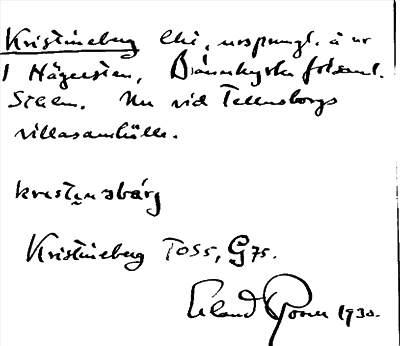 Kristineberg lht, urspungl. å ur
1 Hägersten, Brännkyrka församl.
Sthlm. Nu vid Tellusborgs
villasamhälle.
kristi̯nabärg
Kristineberg TOS5, G75.
Erland 1930.